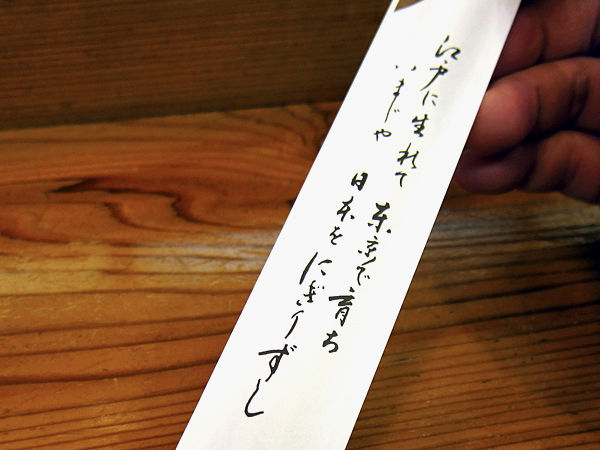 江戸に生れて 東京で育ち
いまじや 日本を にぎりずし